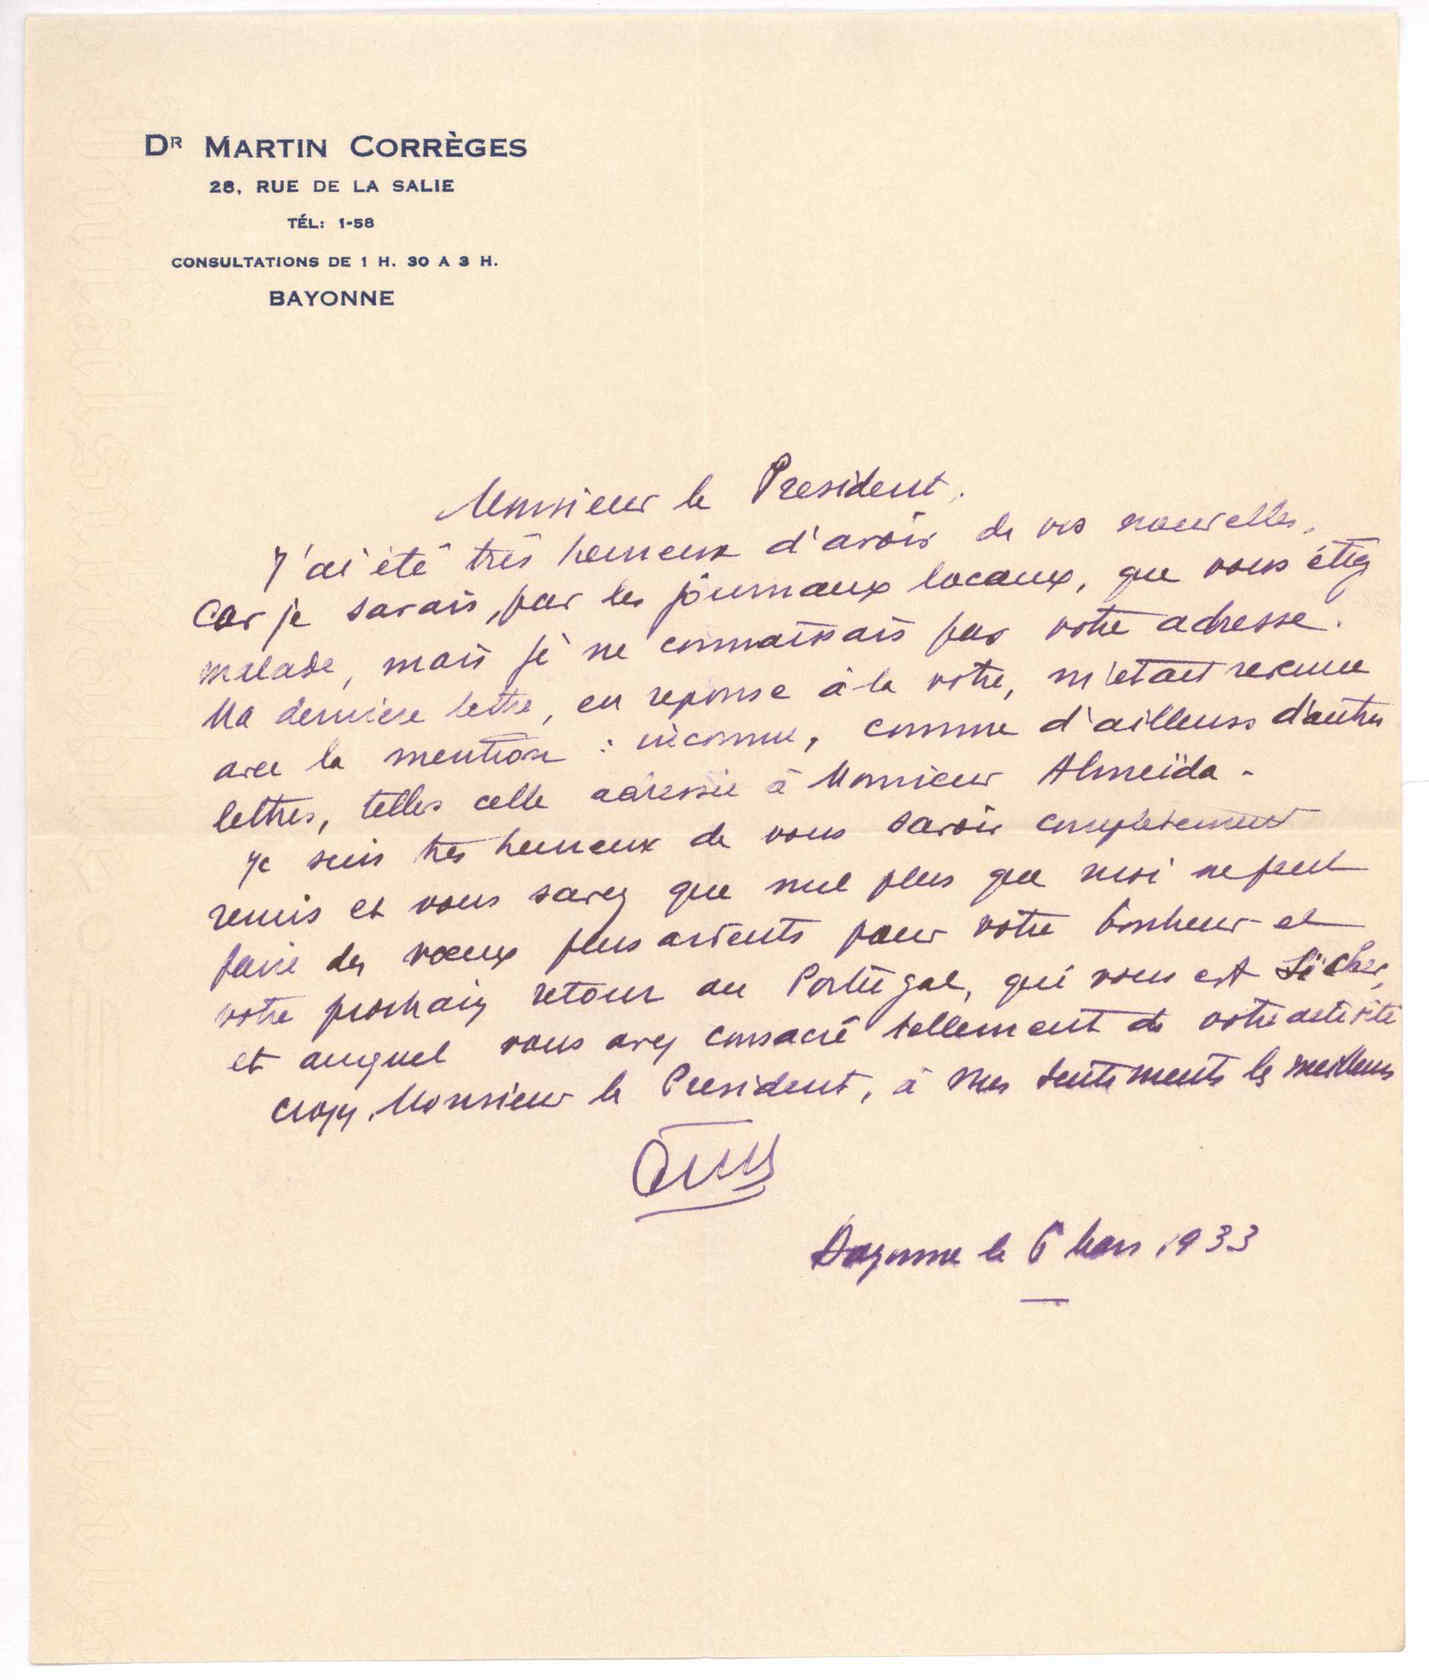 DR MARTIN CORRÈGES
28, RUE DE LA SALIE
TÉL: 1-58
CONSULTATIONS DE 1 H. 30 A 3 H.
BAYONNE
Monsieur le President.
J'ai été très heureux d'avoir de vos nouvelles,
Car je savais, par les journaux locaux, que vous étiez
malade, mais je ne connaissais pas votre adresse.
Ma derniere lettre, en reponse à la votre, m'etait revenue
avec la mention : inconnu, comme d'ailleurs d'autres
lettres, telles celle adressée à Monsieur Almeïda.
Je suis tres heureux de vous savoir completement
remis et vous savez que nul plus que moi ne peut
faire des vœux plus ardents pour votre bonheur et
votre prochain retour au Portugal, qui vous est si cher,
et auquel vous avez consacré tellement de votre activité
Croyez, Monsieur le President, à mes sentiments les meilleurs
Bayonne le 6 Mars 1933